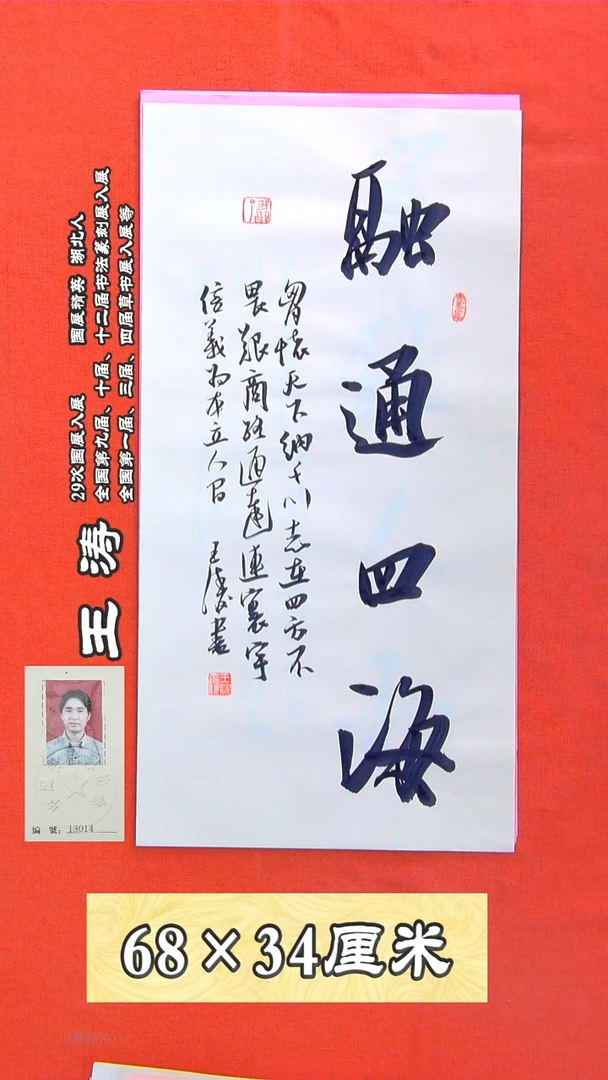 融通四海
胷懷天下納千川志在四方不
畏艱商路通達連寰宇
信義為本立人間 王濤書
王涛
29次国展入展 国展精英 湖北人
全国第九届、十届、十二届书法篆刻展入展
全国第一届、三届、四届草书展入展等
編 號：13014
68×34厘米